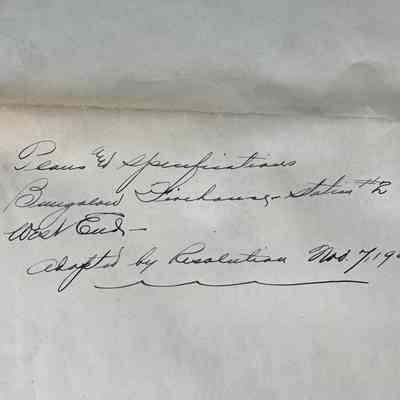 Plans & Specifications
Bungalow Firehouse - Station #2
West End -
Adopted by Resolution Nov. 7, 19